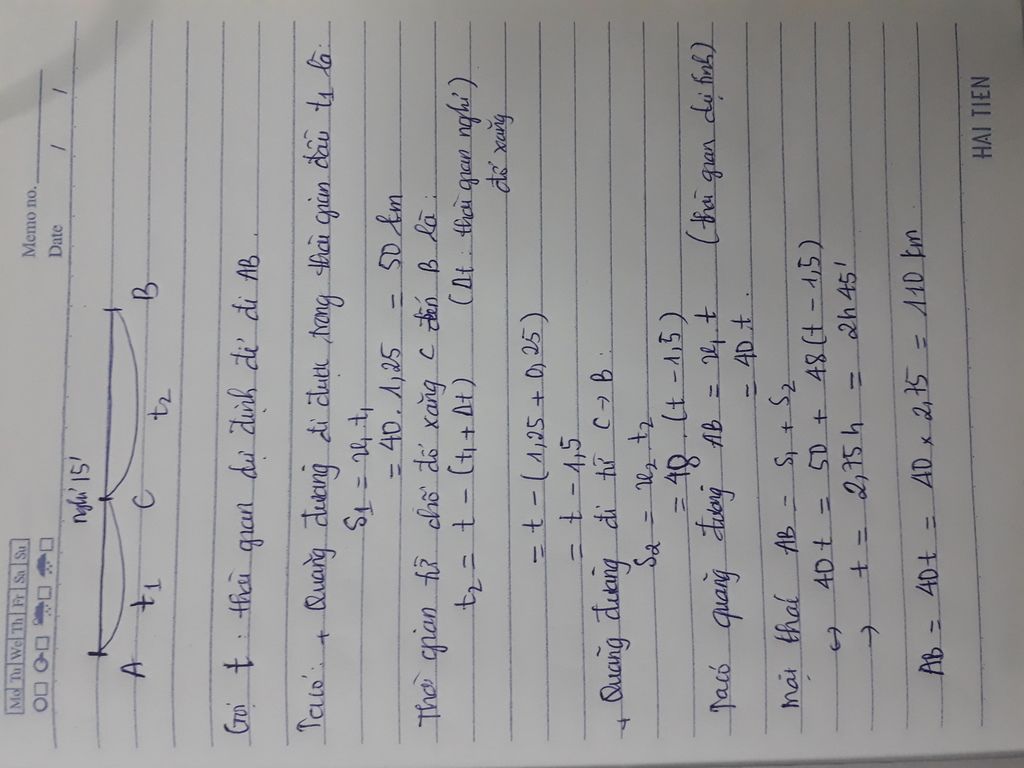 Memo no.
Date / /
Mo Tu We Th Fr Sa Su
nghỉ 15'
A t1 C t2 B
Gọi t : thời gian dự định để đi AB
Ta có: + Quãng đường đi được trong thời gian đầu t1 là:
S1 = v1 t1
= 40. 1,25 = 50 km
Thời gian từ chỗ đổ xăng C đến B là:
t2 = t - (t1 + Δt) (Δt : thời gian nghỉ)
đổ xăng
= t - (1,25 + 0,25)
= t - 1,5
+ Quãng đường đi từ C → B:
S2 = v2 t2
= 48. (t - 1,5)
Ta có quãng đường AB = v1 t (thời gian dự định)
= 40t.
Mặt khác AB = S1 + S2
↔ 40t = 50 + 48(t - 1,5)
→ t = 2,75h = 2h45'
AB = 40t = 40 x 2,75 = 110 km
HAI TIEN